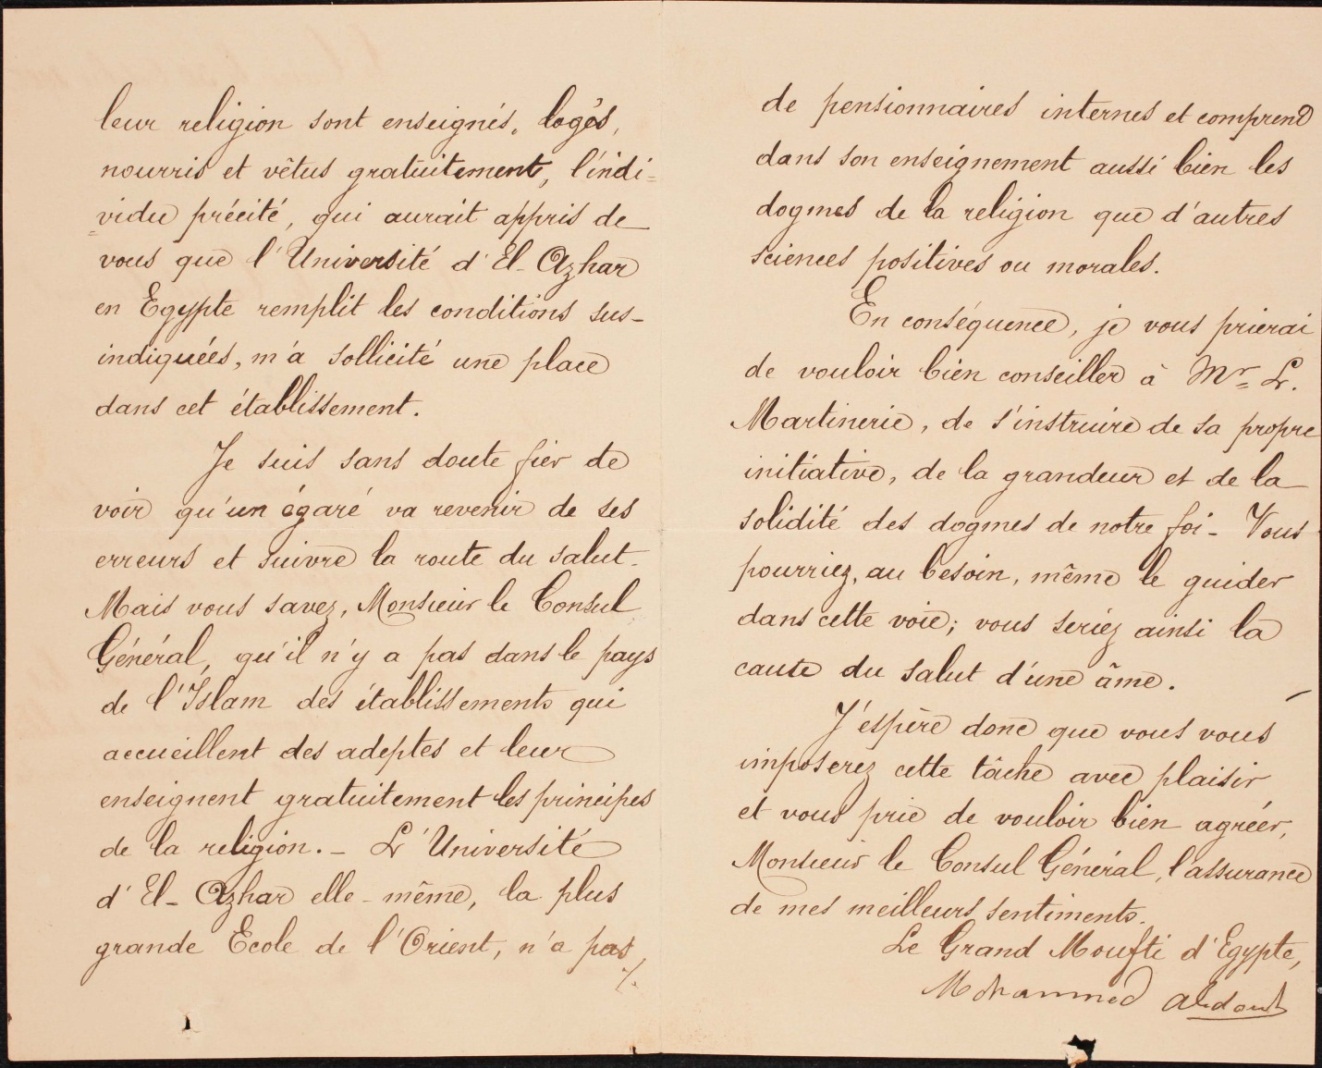 leur religion sont enseignés, logés,
nourris et vêtus gratuitement, l'indi=
=vidu précité, qui aurait appris de
vous que l'Université d'El-Azhar
en Egypte remplit les conditions sus-
indiquées, m'a sollicité une place
dans cet établissement.
Je suis sans doute fier de
voir qu'un égaré va revenir de ses
erreurs et suivre la route du salut.
Mais vous savez, Monsieur le Consul
Général, qu'il n'y a pas dans le pays
de l'Islam des établissements qui
accueillent des adeptes et leur
enseignent gratuitement les principes
de la religion. - L'Université
d'El-Azhar elle-même, la plus
grande Ecole de l'Orient, n'a pas
./.
de pensionnaires internes et comprend
dans son enseignement aussi bien les
dogmes de la religion que d'autres
sciences positives ou morales.
En conséquence, je vous prierai
de vouloir bien conseiller à Mr L.
Martinerie, de s'instruire de sa propre
initiative, de la grandeur et de la
solidité des dogmes de notre foi - Vous
pourriez, au besoin, même le guider
dans cette voie; vous seriez ainsi la
cause du salut d'une âme.
J'espère donc que vous vous
imposerez cette tâche avec plaisir
et vous prie de vouloir bien agréer,
Monsieur le Consul Général, l'assurance
de mes meilleurs sentiments.
Le Grand Moufti d'Egypte,
Mohammed Abdou